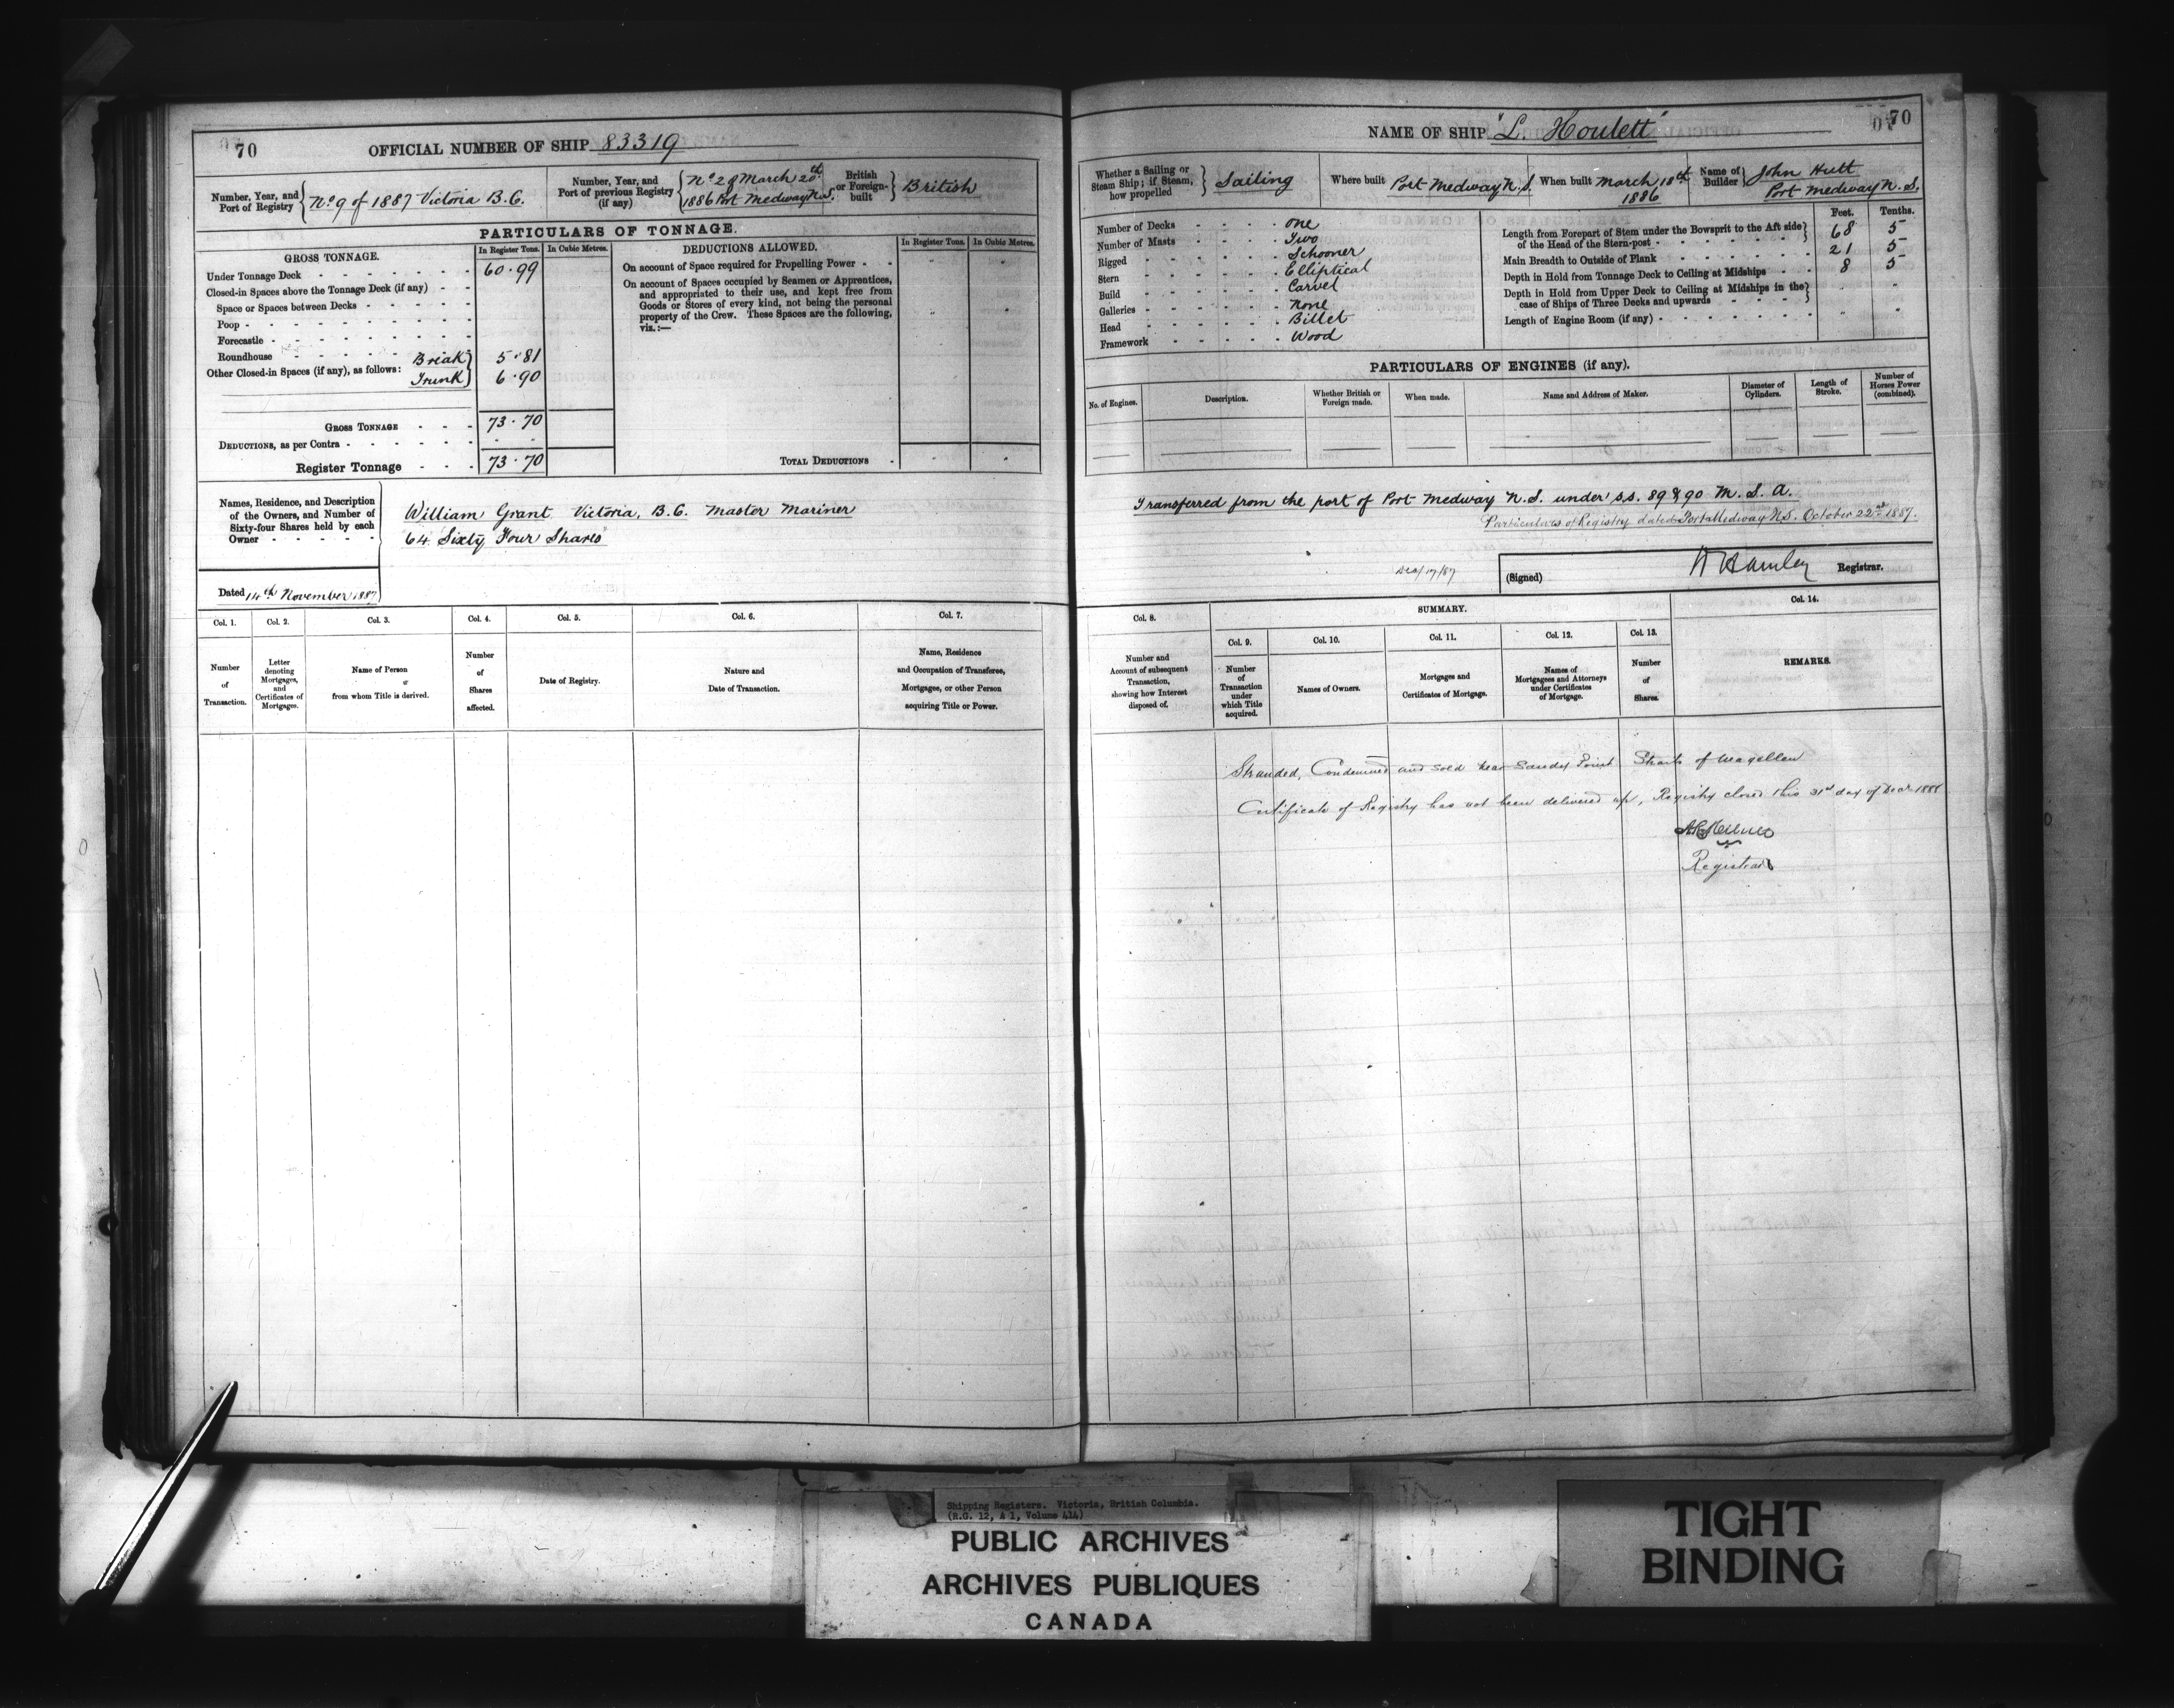 70
OFFICIAL NUMBER OF SHIP 83319
Number, Year, and Port of Registry
No 9 of 1887 Victoria B.C.
Number, Year, and Port of previous Registry (if any)
No 2 of March 20th
1886 Port Medway N.S.
British or Foreign-built
British
PARTICULARS OF TONNAGE.
GROSS TONNAGE.
In Register Tons. In Cubic Metres.
Under Tonnage Deck 60.99
Closed-in Spaces above the Tonnage Deck (if any)
Space or Spaces between Decks
Poop
Forecastle
Roundhouse
Other Closed-in Spaces (if any), as follows:
Break 5.81
Trunk 6.90
GROSS TONNAGE 73.70
DEDUCTIONS, as per Contra
Register Tonnage 73.70
DEDUCTIONS ALLOWED.
In Register Tons. In Cubic Metres.
On account of Space required for Propelling Power
On account of Spaces occupied by Seamen or Apprentices,
and appropriated to their use, and kept free from
Goods or Stores of every kind, not being the personal
property of the Crew. These Spaces are the following,
viz.:—
TOTAL DEDUCTIONS
Names, Residence, and Description
of the Owners, and Number of
Sixty-four Shares held by each
Owner
William Grant Victoria, B.C. Master Mariner
64 Sixty Four Shares
Dated 14th November 1887
Col. 1. Col. 2. Col. 3. Col. 4. Col. 5. Col. 6. Col. 7.
Number of Transaction.
Letter denoting Mortgages, and Certificates of Mortgages.
Name of Person from whom Title is derived.
Number of Shares affected.
Date of Registry.
Nature and Date of Transaction.
Name, Residence and Occupation of Transferee, Mortgagee, or other Person acquiring Title or Power.
70
NAME OF SHIP "L. Houlett"
Whether a Sailing or Steam Ship; if Steam, how propelled
Sailing
Where built Port Medway N.S.
When built March 18th 1886
Name of Builder
John Hutt
Port Medway N.S.
Number of Decks One
Number of Masts Two
Rigged Schooner
Stern Elliptical
Build Carvel
Galleries None
Head Billet
Framework Wood
Feet. Tenths.
Length from Forepart of Stem under the Bowsprit to the Aft side of the Head of the Stern-post 68 5
Main Breadth to Outside of Plank 21 5
Depth in Hold from Tonnage Deck to Ceiling at Midships 8 5
Depth in Hold from Upper Deck to Ceiling at Midships in the case of Ships of Three Decks and upwards
Length of Engine Room (if any)
PARTICULARS OF ENGINES (if any).
No. of Engines.
Description.
Whether British or Foreign made.
When made.
Name and Address of Maker.
Diameter of Cylinders.
Length of Stroke.
Number of Horses Power (combined).
Transferred from the port of Port Medway N.S. under s.s. 89 & 90 M.S.A.
Particulars of Registry dated Port Medway N.S. October 22nd 1887.
Dec/17/87
(Signed) W Hamley Registrar.
Col. 8. SUMMARY. Col. 14.
Col. 9. Col. 10. Col. 11. Col. 12. Col. 13.
Number and Account of subsequent Transaction, showing how Interest disposed of.
Number of Transaction under which Title acquired.
Names of Owners.
Mortgages and Certificates of Mortgage.
Names of Mortgagees and Attorneys under Certificates of Mortgage.
Number of Shares.
REMARKS.
Stranded, Condemned and sold near Sandy Point Straits of Magellan
Certificate of Registry has not been delivered up, Registry closed this 31st day of Decr 1888
Registrar
Shipping Registers. Victoria, British Columbia.
(R.G. 12, A 1, Volume 414)
PUBLIC ARCHIVES
ARCHIVES PUBLIQUES
CANADA
TIGHT
BINDING